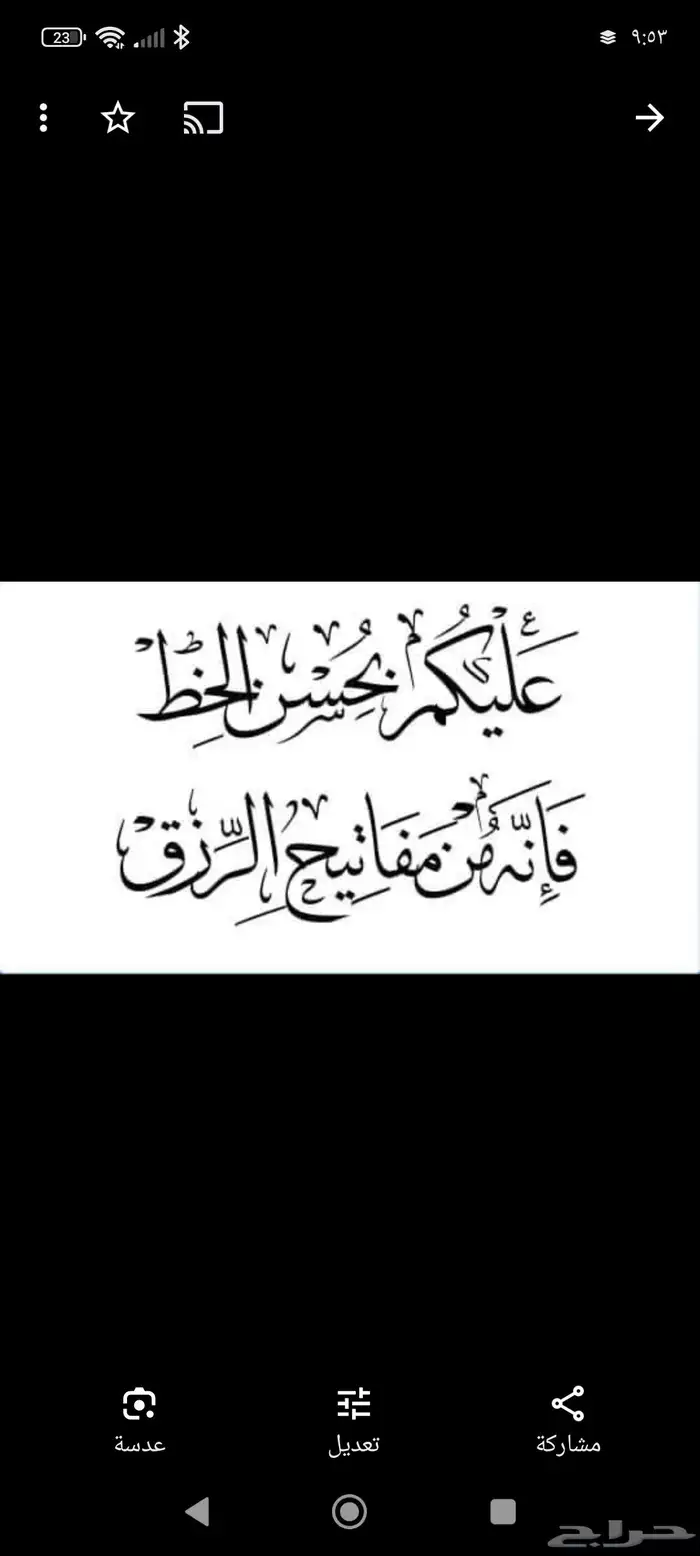 23
٩:٥٣
عَلَيْكُمْ بِحُسْنِ الخَطِّ
فَإِنَّهُ مِنْ مَفَاتِيحِ الرِّزْقِ
مشاركة
تعديل
عدسة
حراج